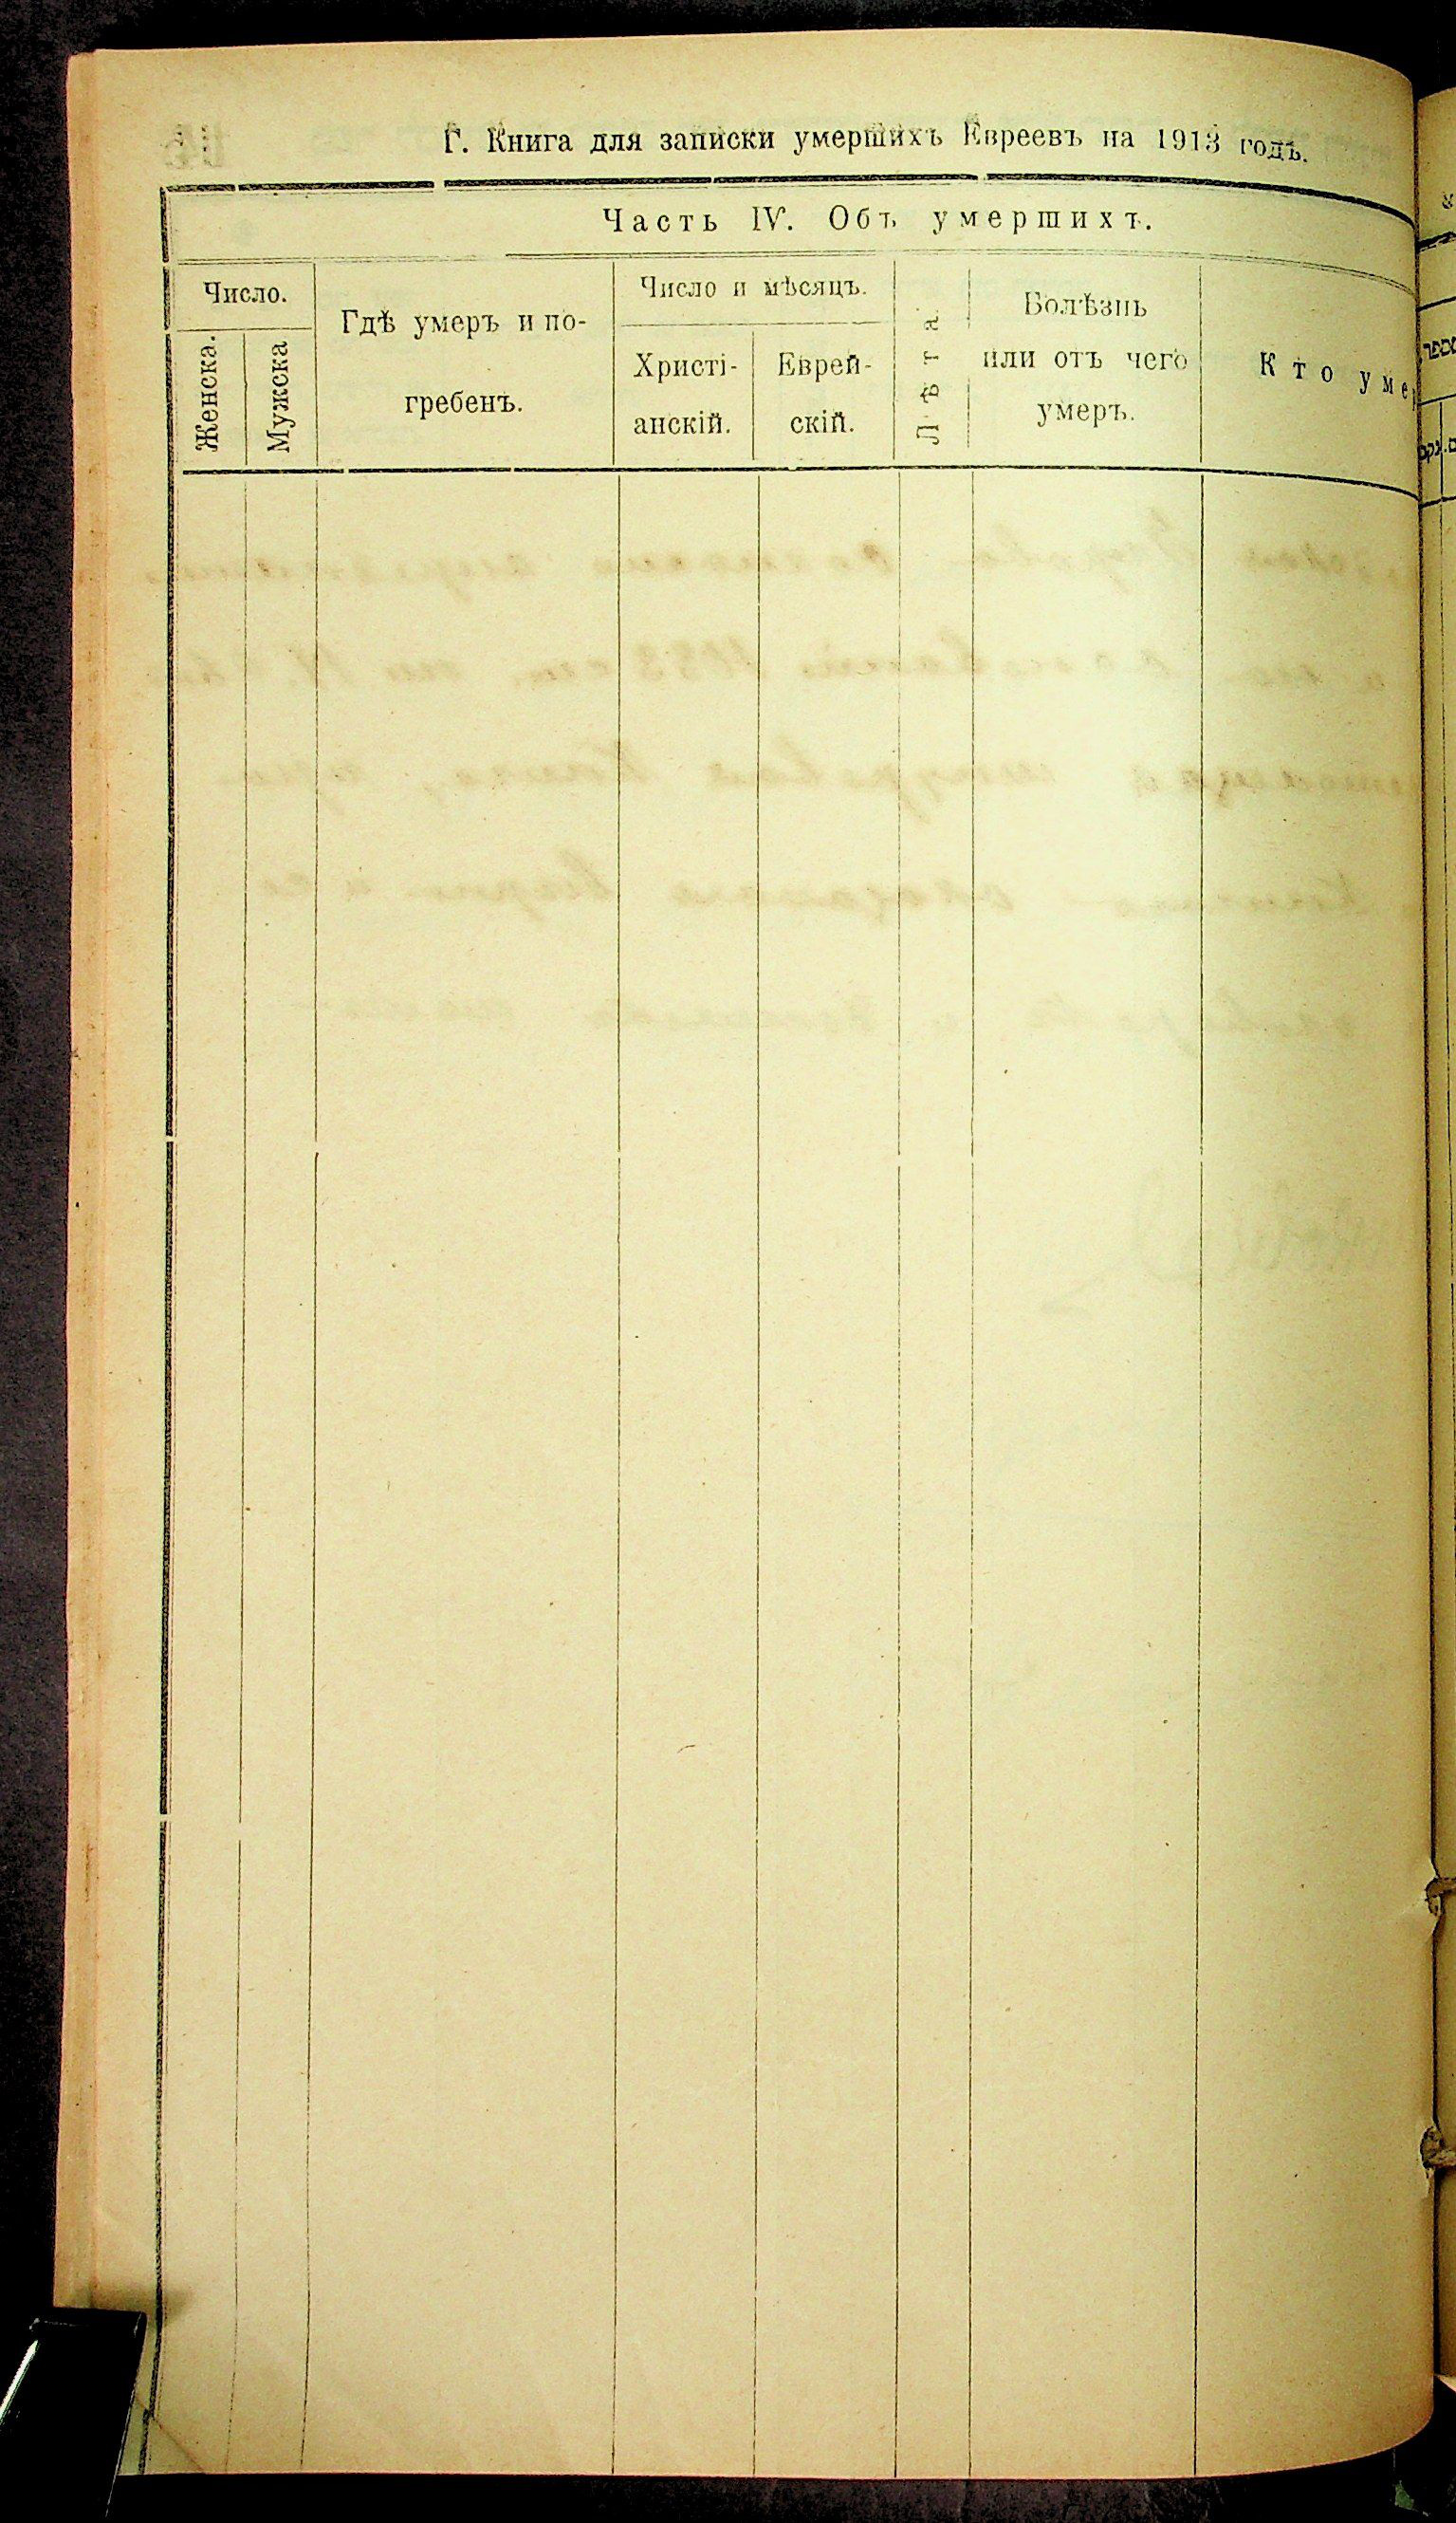 Г. Книга для записки умершихъ Евреевъ на 1913 годъ.
Часть IV. Объ умершихъ.
Число.
Женска.
Мужска
Гдѣ умеръ и по-
гребенъ.
Число и мѣсяцъ.
Христі-
анскій.
Еврей-
скій.
Лѣта.
Болѣзнь
или отъ чего
умеръ.
Кто уме